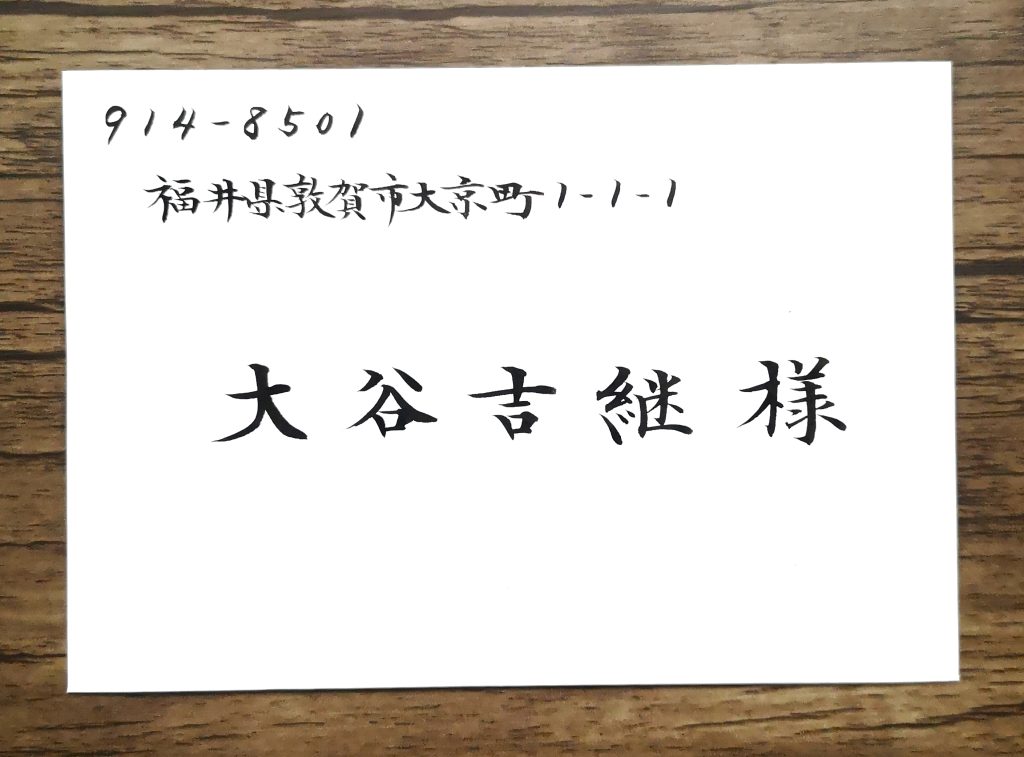 914-8501
福井県敦賀市大京町1-1-1
大谷吉継様